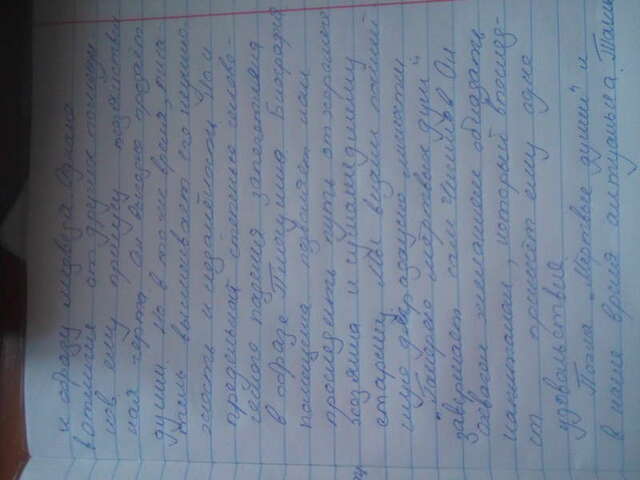 к образу медведя. Однако
в отличие от других помещи-
ков ему присущ хозяйствен
ная черта. Он выгодно продаёт
души. Но в тоже время, писа-
тель высмеивает его неуклю-
жесть и недалёкости. Но и
предельная степенью челове-
ческого падения запечатлена
в образе Плюшкина. Биография
помещика позволяет нам
проследить путь от хорошего
хозяина к сумашедшему
старику. Мы видим полней
шую деградацию личности
„Галерею мёртвых душ"
завершает сам Чичиков. Он
охвачен желанием обладать
капиталом, который впослед-
ст принесёт ему одно
удовольствие.
Поэма „Мёртвые души" и
в наше время актуальна. Таки